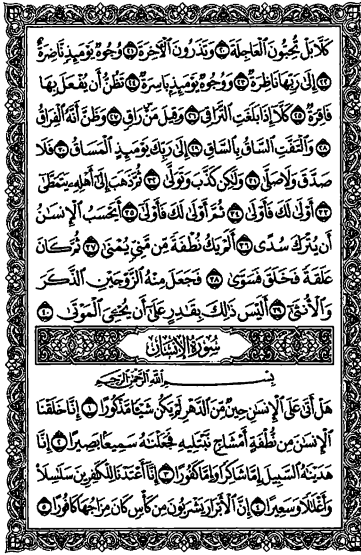 كَلَّا بَلْ تُحِبُّونَ ٱلْعَاجِلَةَ ٢٠ وَتَذَرُونَ ٱلْأَخِرَةَ ٢١ وُجُوهٌ يَوْمَئِذٍ نَّاضِرَةٌ
٢٢ إِلَىٰ رَبِّهَا نَاظِرَةٌ ٢٣ وَوُجُوهٌ يَوْمَئِذٍۭ بَاسِرَةٌ ٢٤ تَظُنُّ أَن يُفْعَلَ بِهَا
فَاقِرَةٌ ٢٥ كَلَّآ إِذَا بَلَغَتِ ٱلتَّرَاقِىَ ٢٦ وَقِيلَ مَنْ رَاقٍ ٢٧ وَظَنَّ أَنَّهُ ٱلْفِرَاقُ
٢٨ وَٱلْتَفَّتِ ٱلسَّاقُ بِٱلسَّاقِ ٢٩ إِلَىٰ رَبِّكَ يَوْمَئِذٍ ٱلْمَسَاقُ ٣٠ فَلَا
صَدَّقَ وَلَا صَلَّىٰ ٣١ وَلَٰكِن كَذَّبَ وَتَوَلَّىٰ ٣٢ ثُمَّ ذَهَبَ إِلَىٰٓ أَهْلِهِۦ يَتَمَطَّىٰٓ
٣٣ أَوْلَىٰ لَكَ فَأَوْلَىٰ ٣٤ ثُمَّ أَوْلَىٰ لَكَ فَأَوْلَىٰٓ ٣٥ أَيَحْسَبُ ٱلْإِنسَٰنُ
أَن يُتْرَكَ سُدًى ٣٦ أَلَمْ يَكُ نُطْفَةً مِّن مَّنِىٍّ يُمْنَىٰ ٣٧ ثُمَّ كَانَ
عَلَقَةً فَخَلَقَ فَسَوَّىٰ ٣٨ فَجَعَلَ مِنْهُ ٱلزَّوْجَيْنِ ٱلذَّكَرَ
وَٱلْأُنثَىٰٓ ٣٩ أَلَيْسَ ذَٰلِكَ بِقَٰدِرٍ عَلَىٰٓ أَن يُحْۦِىَ ٱلْمَوْتَىٰ ٤٠
سُورَةُ الْإِنسَانِ
بِسْمِ ٱللَّهِ ٱلرَّحْمَٰنِ ٱلرَّحِيمِ
هَلْ أَتَىٰ عَلَى ٱلْإِنسَٰنِ حِينٌ مِّنَ ٱلدَّهْرِ لَمْ يَكُن شَيْـًٔا مَّذْكُورًا ١ إِنَّا خَلَقْنَا
ٱلْإِنسَٰنَ مِن نُّطْفَةٍ أَمْشَاجٍ نَّبْتَلِيهِ فَجَعَلْنَٰهُ سَمِيعًۢا بَصِيرًا ٢ إِنَّا
هَدَيْنَٰهُ ٱلسَّبِيلَ إِمَّا شَاكِرًا وَإِمَّا كَفُورًا ٣ إِنَّآ أَعْتَدْنَا لِلْكَٰفِرِينَ سَلَٰسِلَا۟
وَأَغْلَٰلًا وَسَعِيرًا ٤ إِنَّ ٱلْأَبْرَارَ يَشْرَبُونَ مِن كَأْسٍ كَانَ مِزَاجُهَا كَافُورًا ٥